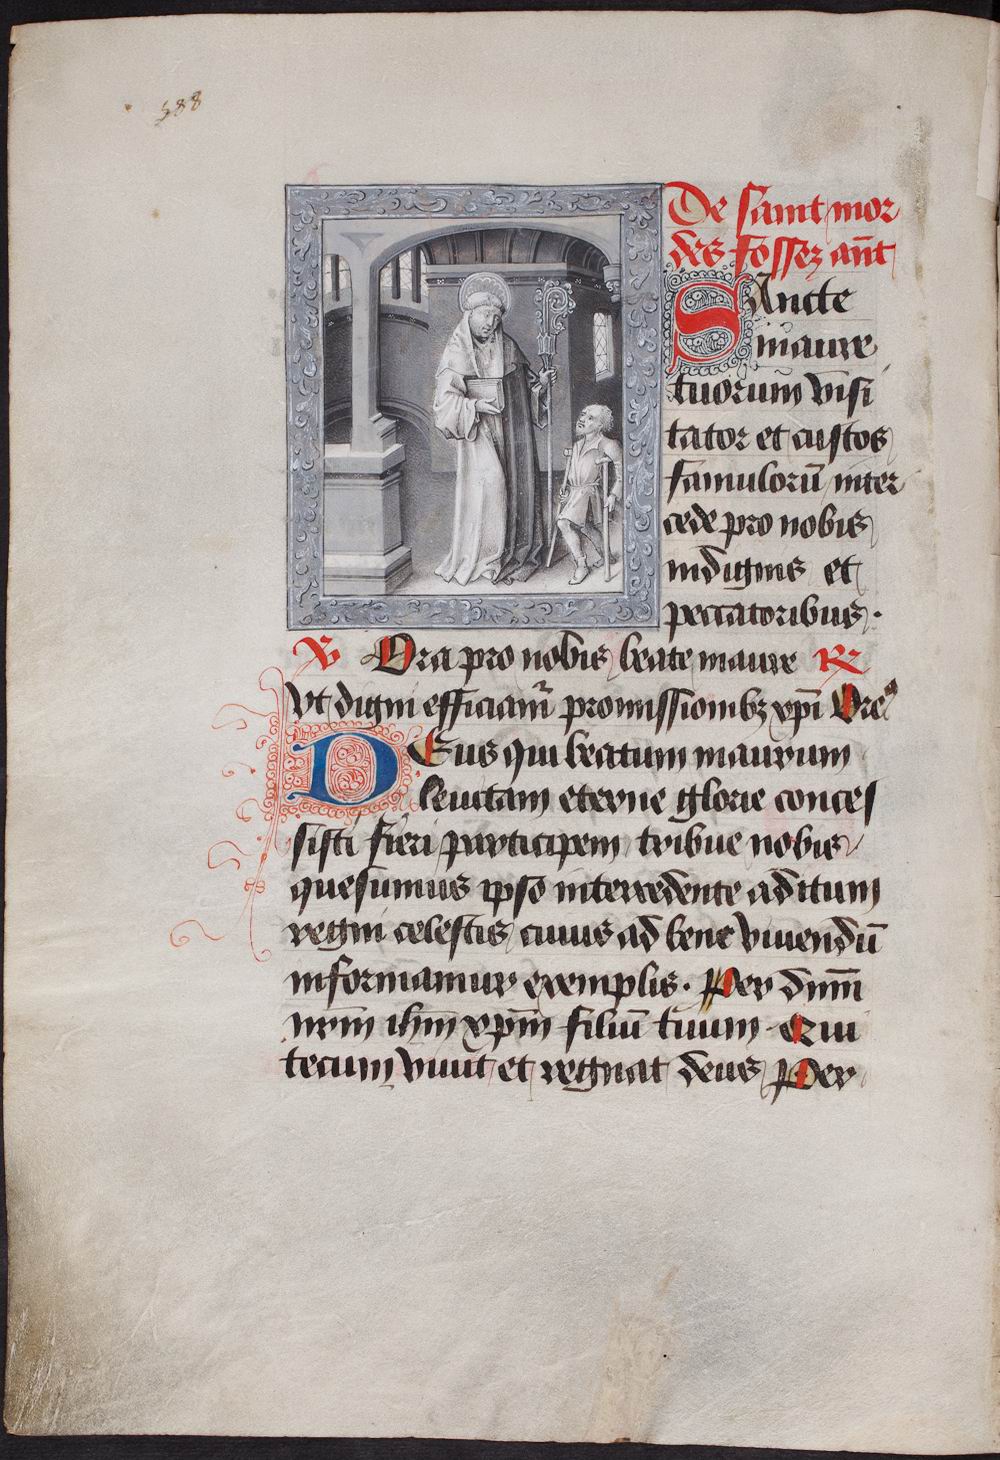 588
De saint mor
des fossez añt
SAncte
maure
tuorum visi
tator et custos
famulorū inter
cede pro nobis
indignis et
peccatoribus.
V Ora pro nobis beate maure R
Vt digni efficiam̃ promissionibꝫ xp̄i Oreo
DEus qui beatum maurum
leuitam eterne glorie conces
sisti fieri participem tribue nobis
quesumus ipso intercedente aditum
regni celestis cuius ad bene viuendū
informamur exemplis. Per dn̄m
nr̄m ih̄m xp̄m filiū tuum Qui
tecum viuit et regnat deus Per